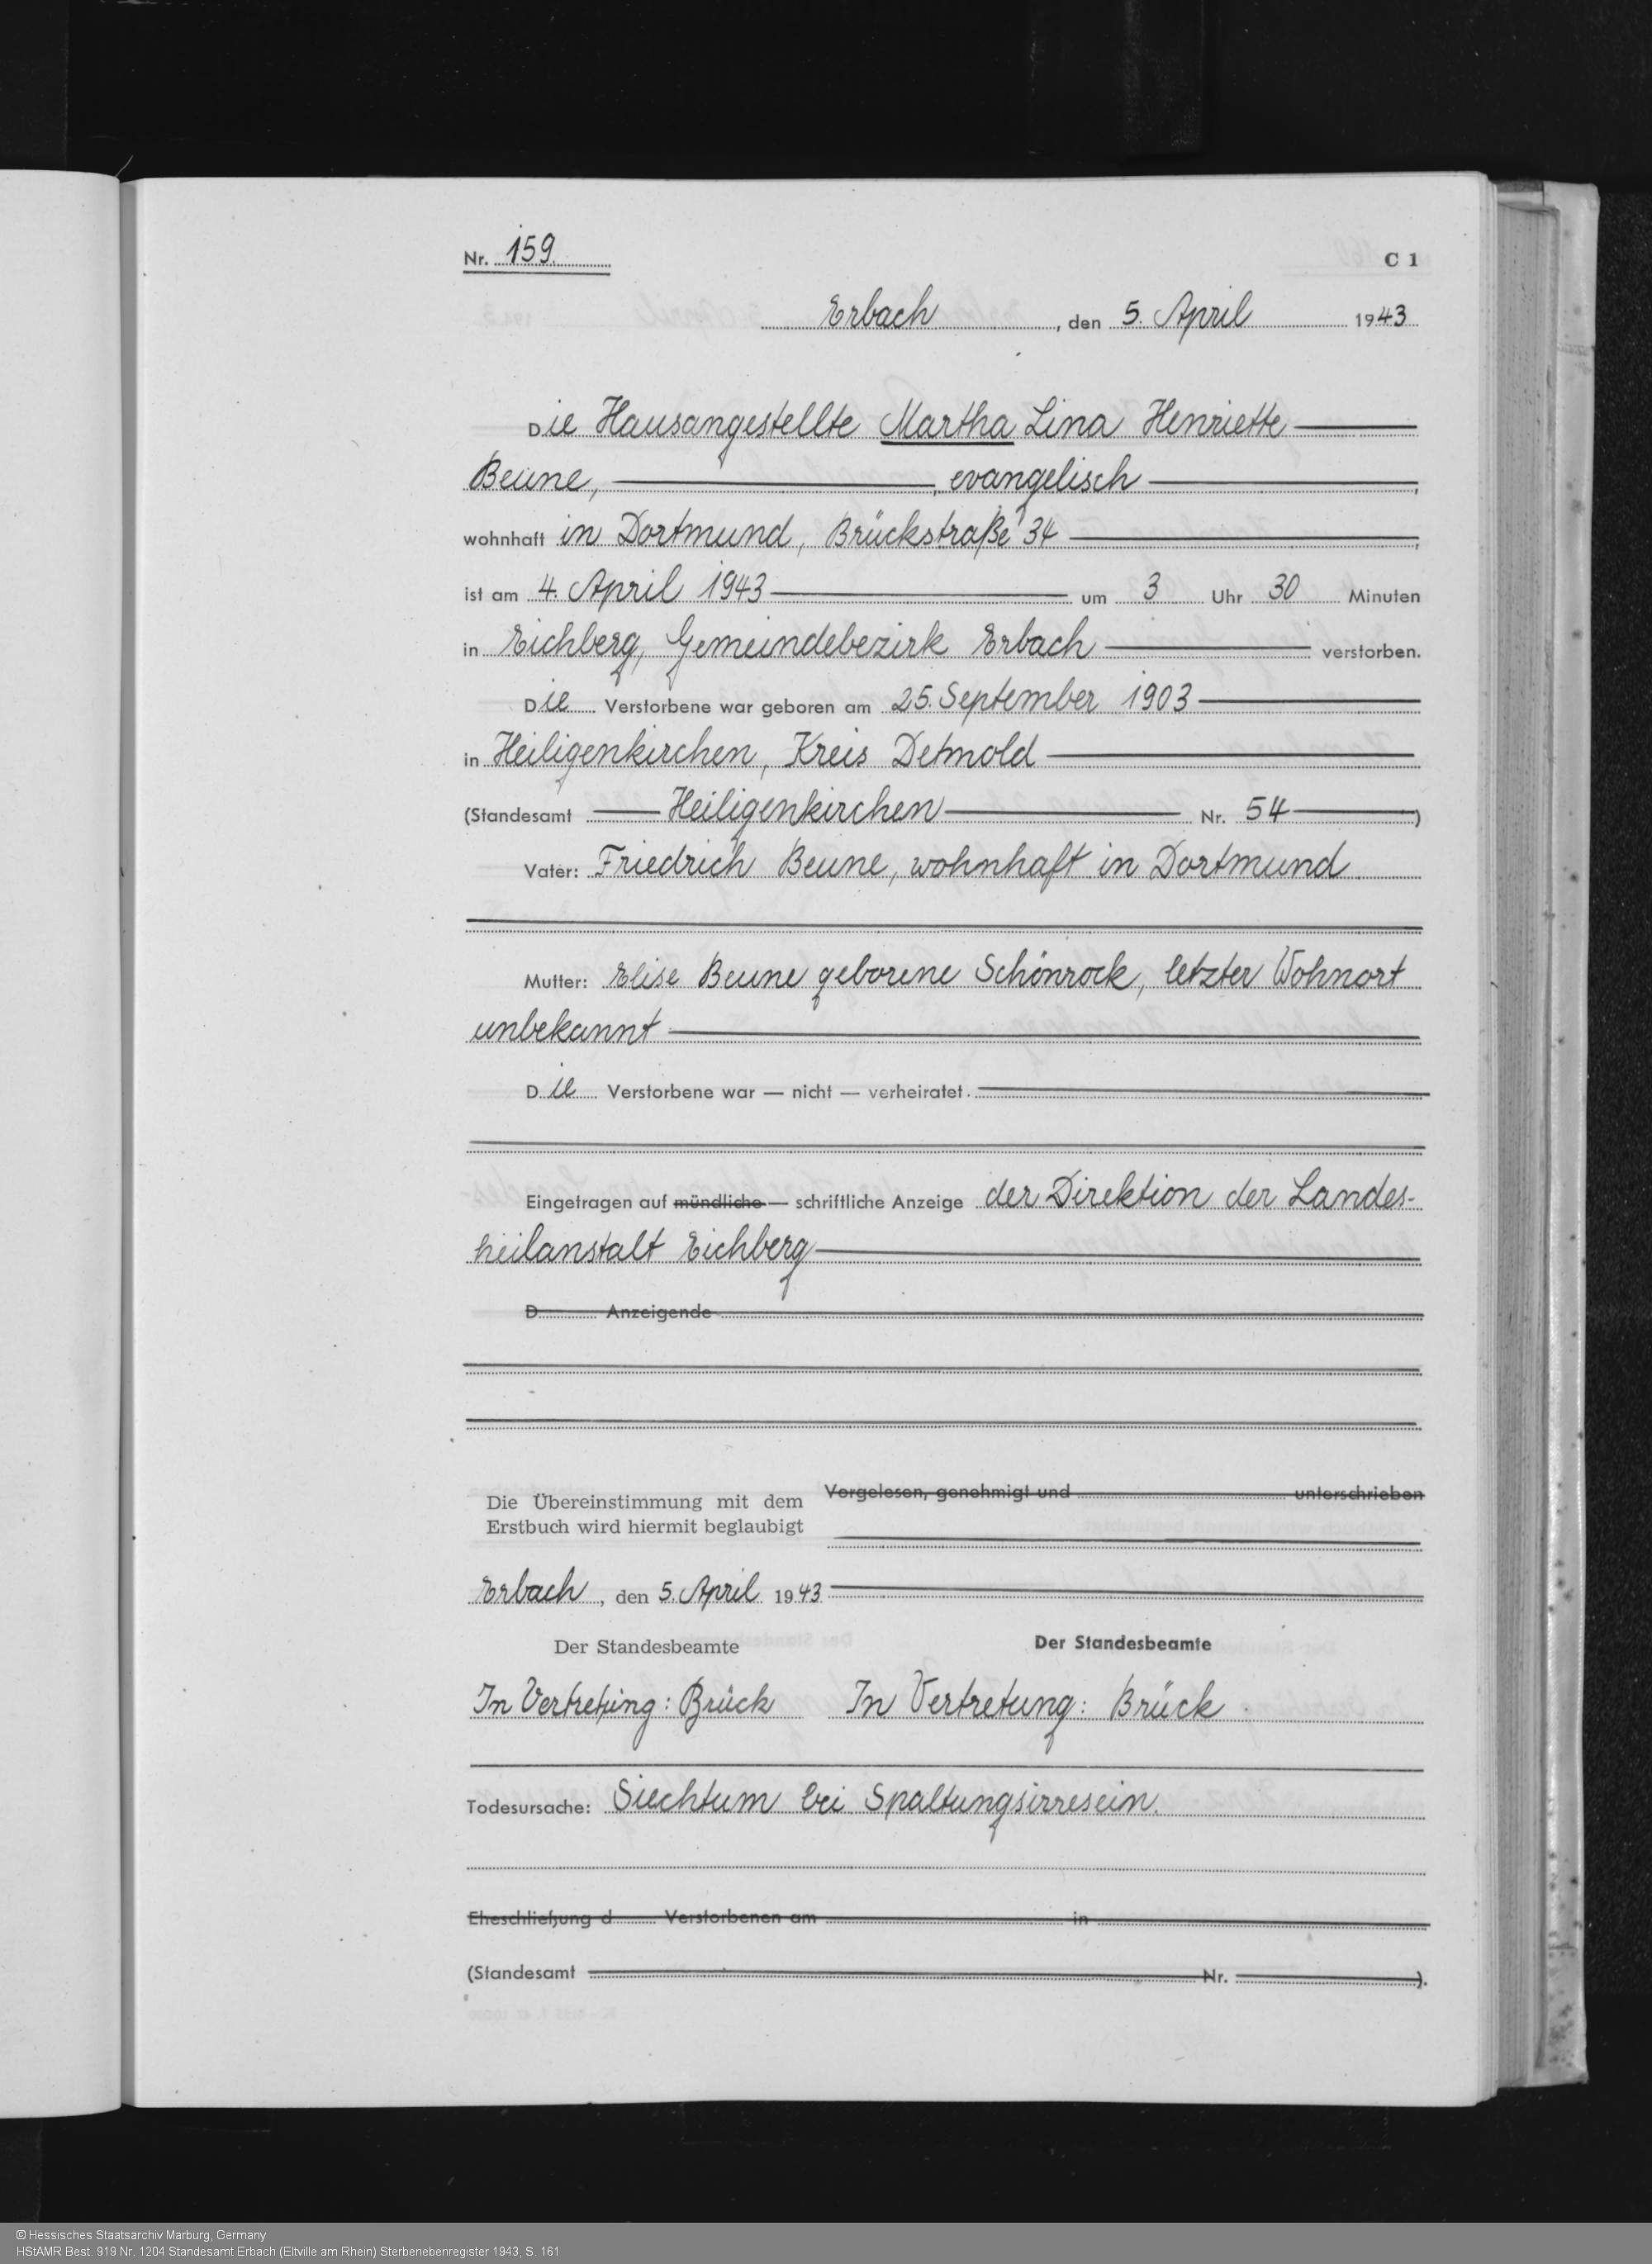 Nr. 159. C 1
Erbach, den 5. April 1943
Die Hausangestellte Martha Lina Henriette
Beune, , evangelisch ,
wohnhaft in Dortmund, Brückstraße 34 ,
ist am 4. April 1943 um 3 Uhr 30 Minuten
in Eichberg, Gemeindebezirk Erbach verstorben.
Die Verstorbene war geboren am 25. September 1903
in Heiligenkirchen, Kreis Detmold
(Standesamt Heiligenkirchen Nr. 54 )
Vater: Friedrich Beune, wohnhaft in Dortmund
Mutter: Elise Beune geborene Schönrock, letzter Wohnort
unbekannt
Die Verstorbene war — nicht — verheiratet.
Eingetragen auf mündliche — schriftliche Anzeige der Direktion der Landes-
heilanstalt Eichberg
D Anzeigende
Vorgelesen, genehmigt und unterschrieben
Die Übereinstimmung mit dem
Erstbuch wird hiermit beglaubigt
Erbach, den 5. April 1943
Der Standesbeamte Der Standesbeamte
In Vertretung: Brück In Vertretung: Brück
Todesursache: Siechtum bei Spaltungsirresein.
Eheschließung d Verstorbenen am in
(Standesamt Nr. ).
© Hessisches Staatsarchiv Marburg, Germany
HStAMR Best. 919 Nr. 1204 Standesamt Erbach (Eltville am Rhein) Sterbenebenregister 1943, S. 161